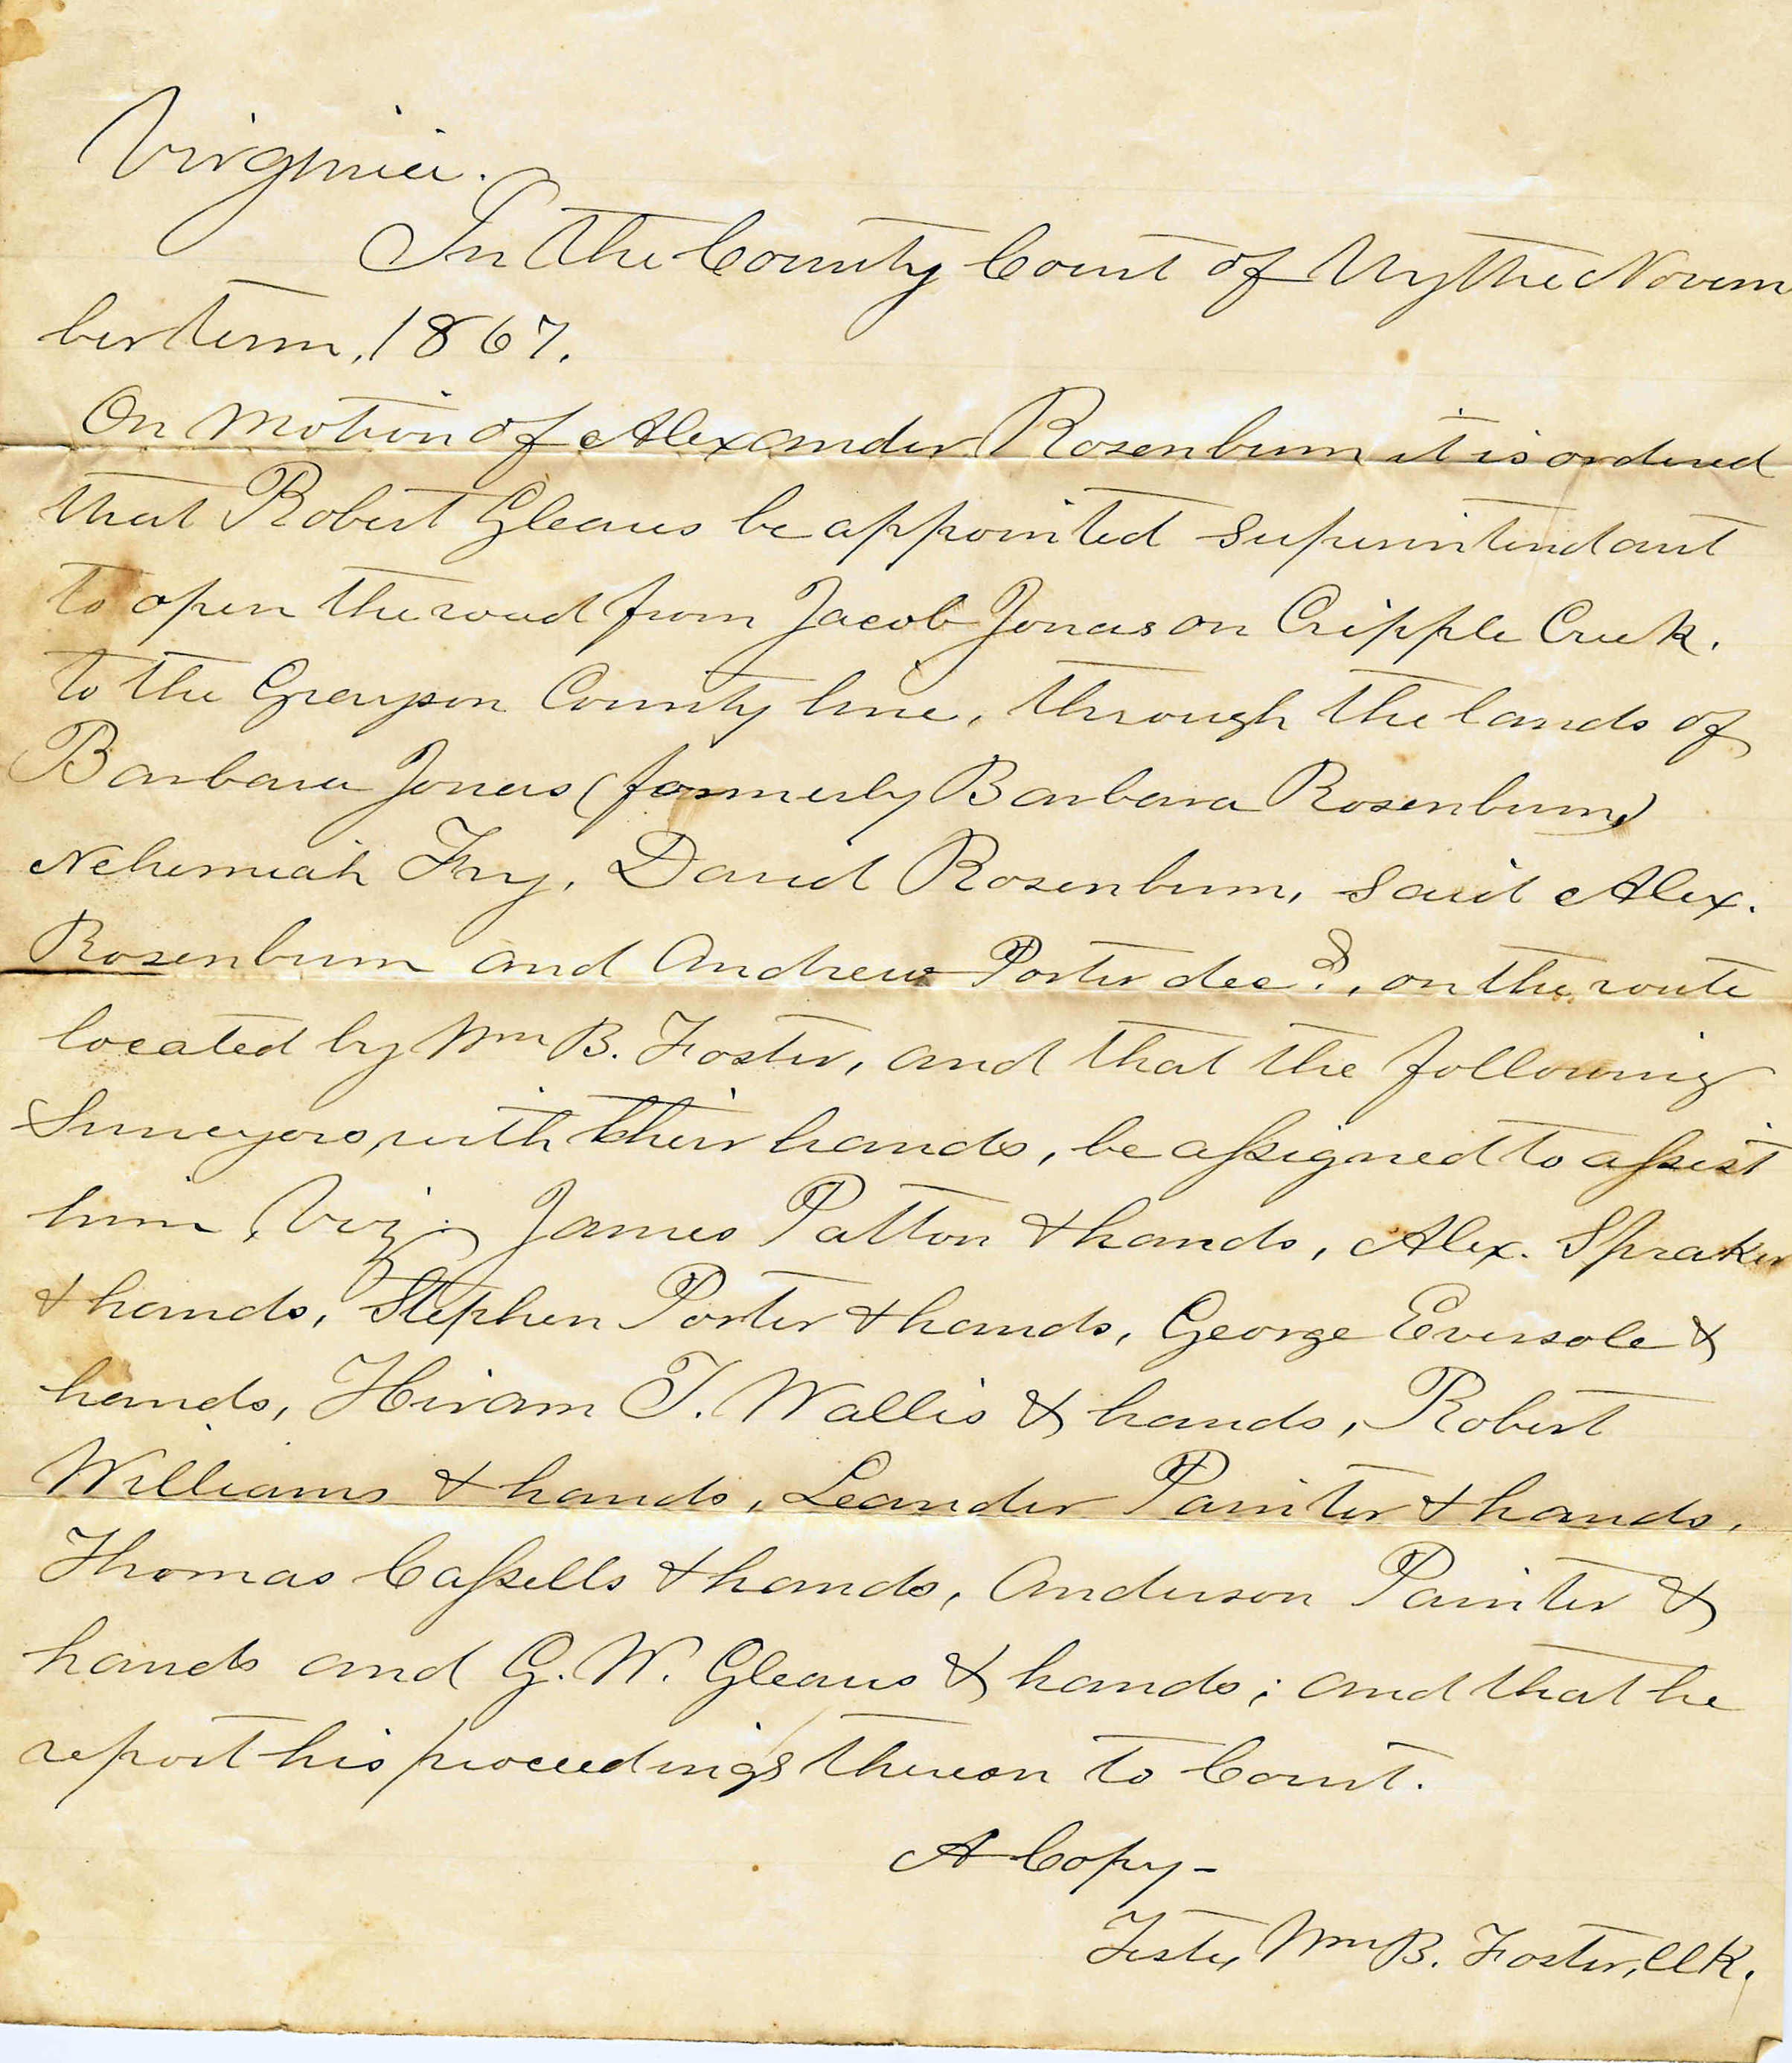 Virginia.
In the County Court of Wythe Novem
ber term, 1867.
On motion of Alexander Rosenbum it is ordered
that Robert Gleaves be appointed superintendant
to open the road from Jacob Jonas on Cripple Creek.
to the Grayson County line, through the lands of
Barbara Jonas (formerly Barbara Rosenbum)
Nehemiah Fry, David Rosenbum, said Alex.
Rosenbum and Andrew Porter decd., on the route
located by Wm B. Foster, and that the following
Surveyors, with their hands, be assigned to assist
him, Viz: James Patton & hands, Alex. Spraker
& hands, Stephen Porter & hands, George Eversole &
hands, Hiram T. Wallis & hands, Robert
Williams & hands, Leander Painter & hands,
Thomas Cassells & hands, Anderson Painter &
hands and G. W. Gleaves & hands; and that he
report his proceedings thereon to Court.
A Copy-
Teste, Wm B. Foster, Clk.